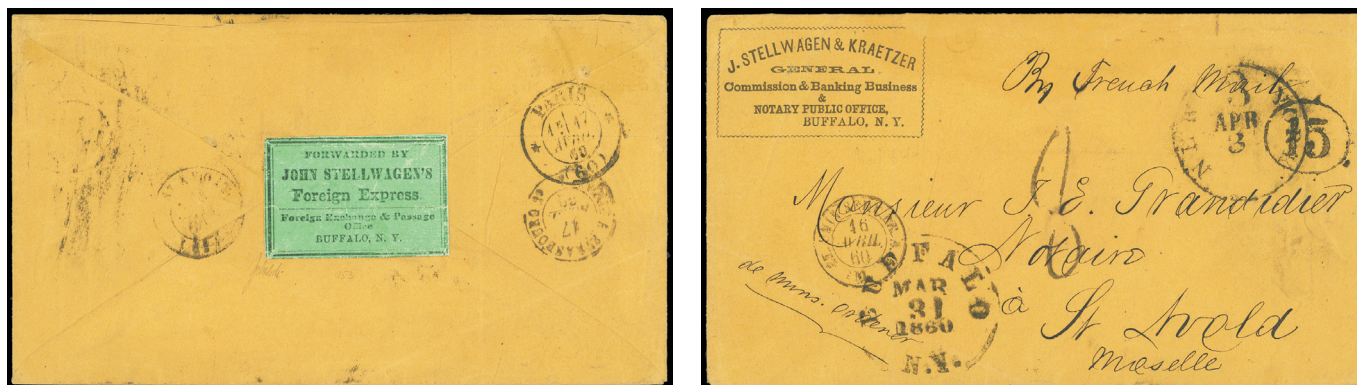 PARIS
17
AVRIL
60
(60)
FORWARDED BY
JOHN STELLWAGEN'S
Foreign Express.
Foreign Exchange & Passage
Office
BUFFALO, N. Y.
17
J. STELLWAGEN & KRAETZER
GENERAL
Commission & Banking Business
&
NOTARY PUBLIC OFFICE,
BUFFALO, N. Y.
By French Mail
3
APR
3
15
Monsieur J. E. Grandidier
Notaire
à
St Avold
Moselle
16
AVRIL
60
BUFFALO
MAR
31
1860
N.Y.